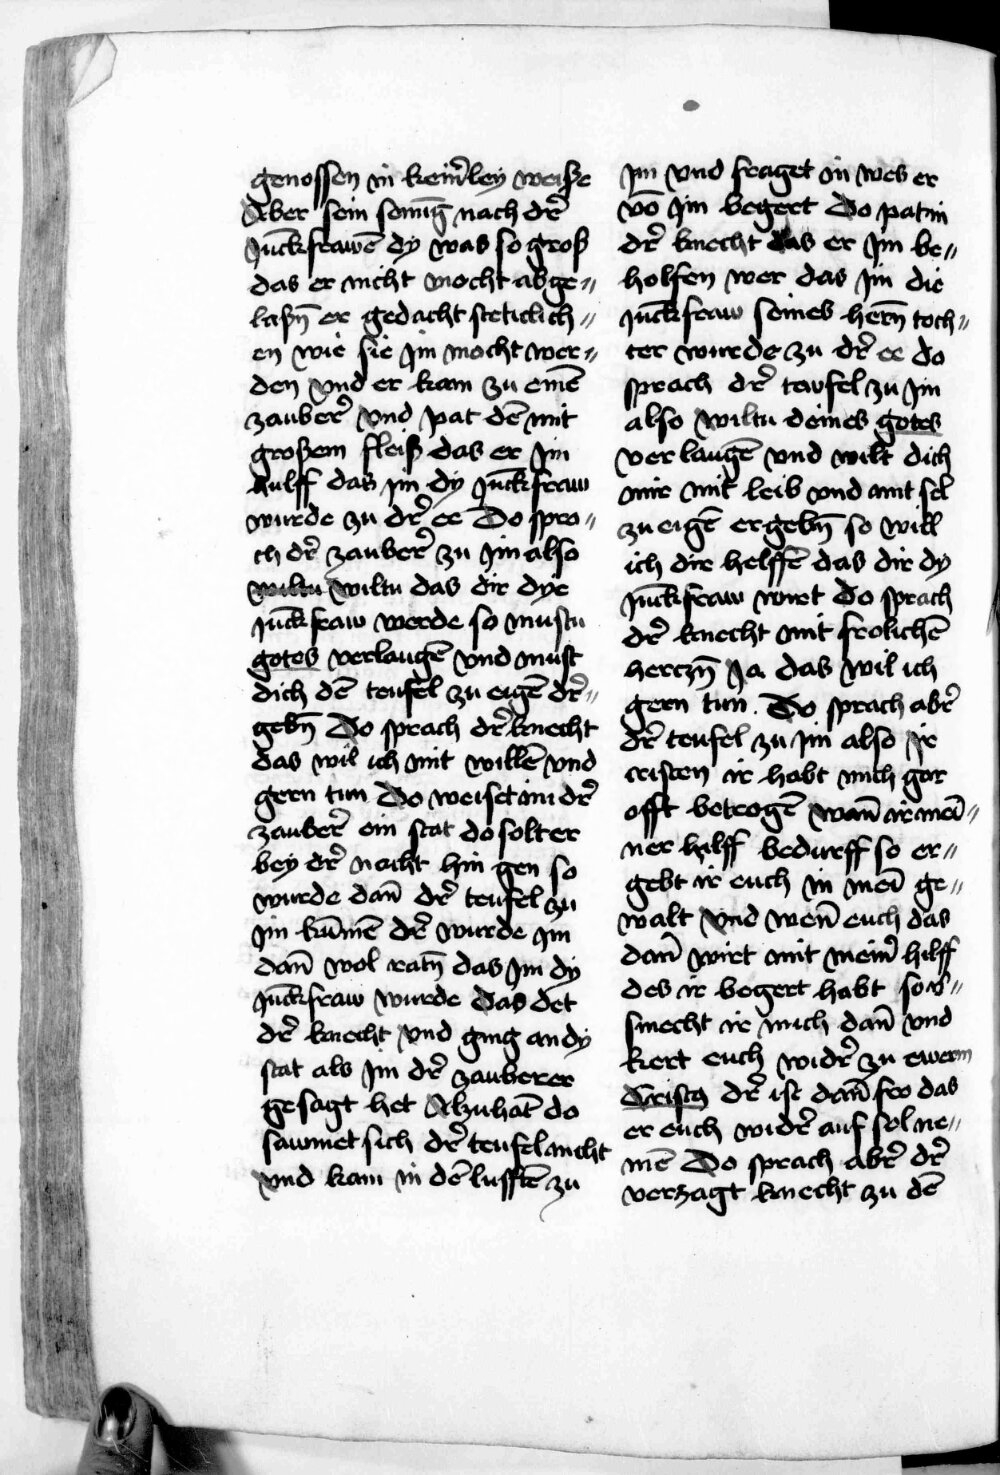 genossen in keinˀley weiſze
Aber sein senūg nach drˀ
Juckfrawē dy was so groß
das er nicht mocht abge〃
laßn̄ er gedacht steticlich〃
en wie sie Jm mocht wer〃
den vnd er kam zu einē
zauberˀ vnd pat dē mit
großem fleiß das er Jm
hulff das jm dy Juckfraw
wurde zu drˀ ee Do spra〃
ch drˀ zauberˀ zu Jm also
wiltu wiltu das dir dye
Juckfraw werde so mustu
gotes verlaugē vnd must
dich dē teufel zu eigē drˀ〃
gebn̄ Do sprach drˀ knecht
das wil ich mit willē vnd
gern tun Do weiset im drˀ
zauberˀ ein stat do solt er
bey drˀ nacht hin gen so
wurde dan̄ drˀ teufel zu
im kūmē drˀ wurde Jm
dan̄ wol ratn̄ das Jm dy
Juckfraw wurde Das det
drˀ knecht vnd ging an dy
stat als Jm drˀ zauberer
gesagt het Alzuhāt do
sawmet sich drˀ teufel nicht
vnd kam in dē lufftē zu
Jm vnd fraget in wes er
vō Jm begert Do pat in
drˀ knecht das er Jm be〃
holfen wer das Jm die
Juckfraw seines hern̄ toch〃
ter wurde zu drˀ ee do
sprach drˀ teufel zu Jm
also wiltu deines gotes
verlaugē vnd wilt dich
mir mit leib vnd mit sel
zu eigē ergebn̄ so will
ich dir helffē das dir dy
Juckfraw wirt Do sprach
drˀ knecht mit frolichē
herczn̄ Ja das wil ich
gern tun. Do sprach abrˀ
drˀ teufel zu Jm also Jr
cristen ir habt mich gar
offt betrogē wan̄ ir mei〃
ner hilff bedurff so er〃
gebt ir euch in mei ge〃
walt vnd wen̄ euch das
dan̄ wirt mit meinˀ hilff
des ir begert habt so vˀ〃
smecht ir mich dan̄ vnd
kert euch widrˀ zu ewerm
Cristo drˀ ist dan̄ fro das
er euch widrˀ auf sol ne〃
mē Do sprach abrˀ drˀ
verzagt knecht zu dē